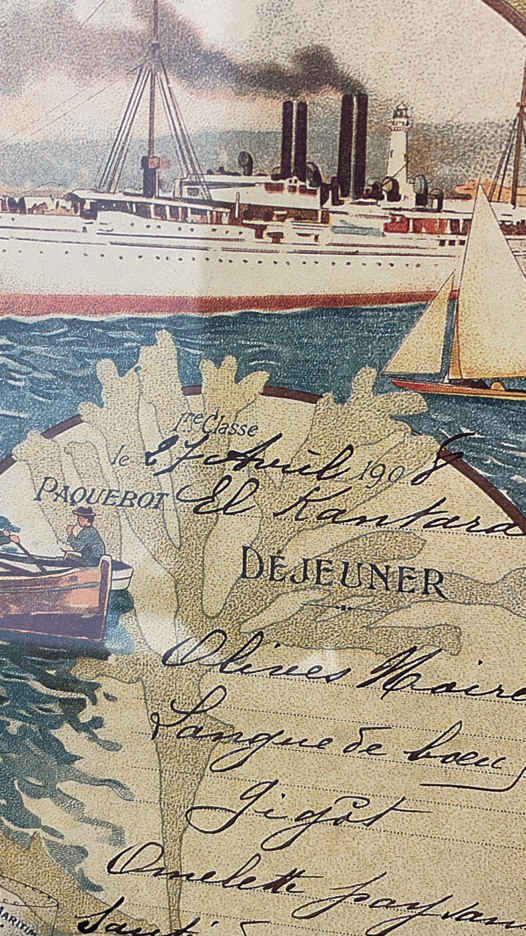 1re Classe
le 27 Avril 1908
PAQUEBOT El Kantara
DÉJEUNER
Olives Noire
Langue de boeu
Gigôt
Omelette paysan
Sauté
MARITIM